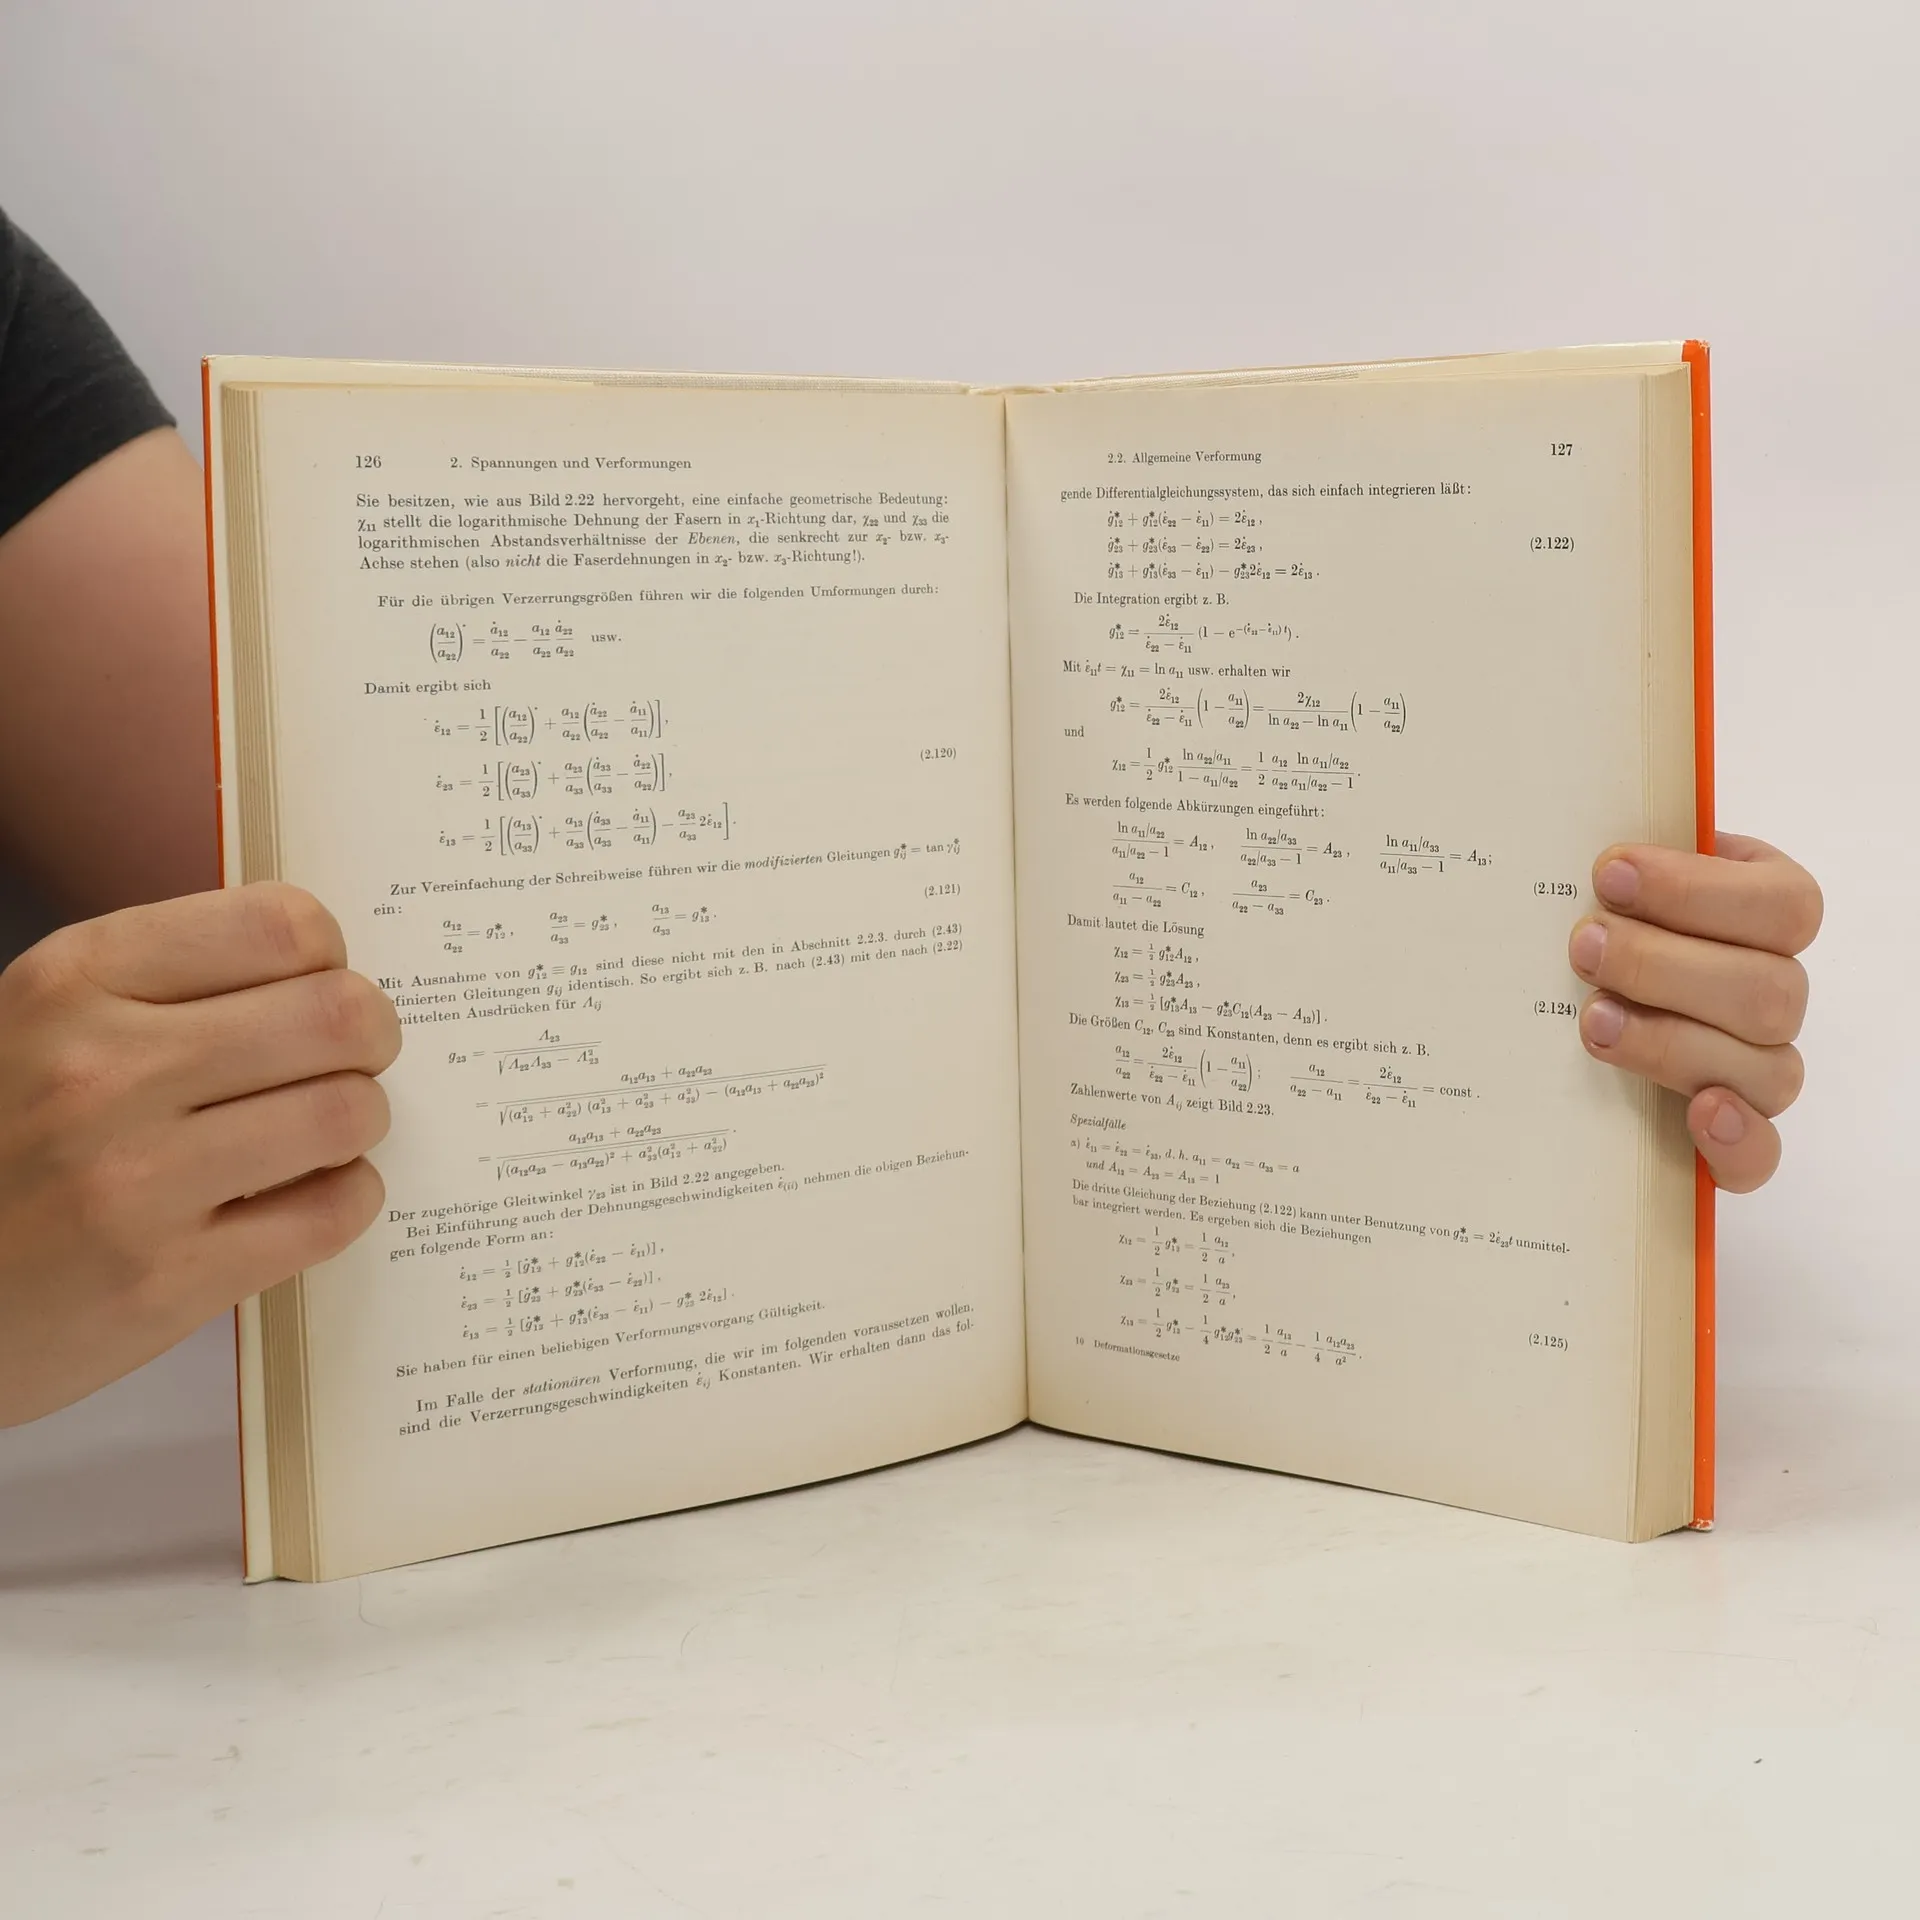 126 2. Spannungen und Verformungen
Sie besitzen, wie aus Bild 2.22 hervorgeht, eine einfache geometrische Bedeutung:
χ₁₁ stellt die logarithmische Dehnung der Fasern in x₁-Richtung dar, χ₂₂ und χ₃₃ die
logarithmischen Abstandsverhältnisse der Ebenen, die senkrecht zur x₂- bzw. x₃-
Achse stehen (also nicht die Faserdehnungen in x₂- bzw. x₃-Richtung!).
Für die übrigen Verzerrungsgrößen führen wir die folgenden Umformungen durch:
(a₁₂/a₂₂)˙ = ȧ₁₂/a₂₂ − a₁₂/a₂₂ ȧ₂₂/a₂₂ usw.
Damit ergibt sich
ε̇₁₂ = 1/2 [(a₁₂/a₂₂)˙ + a₁₂/a₂₂ (ȧ₂₂/a₂₂ − ȧ₁₁/a₁₁)],
ε̇₂₃ = 1/2 [(a₂₃/a₃₃)˙ + a₂₃/a₃₃ (ȧ₃₃/a₃₃ − ȧ₂₂/a₂₂)], (2.120)
ε̇₁₃ = 1/2 [(a₁₃/a₃₃)˙ + a₁₃/a₃₃ (ȧ₃₃/a₃₃ − ȧ₁₁/a₁₁) − a₂₃/a₃₃ 2ε̇₁₂].
Zur Vereinfachung der Schreibweise führen wir die modifizierten Gleitungen g*ᵢⱼ = tan γ*ᵢⱼ
ein:
a₁₂/a₂₂ = g*₁₂, a₂₃/a₃₃ = g*₂₃, a₁₃/a₃₃ = g*₁₃. (2.121)
Mit Ausnahme von g*₁₂ ≡ g₁₂ sind diese nicht mit den in Abschnitt 2.2.3. durch (2.43)
finierten Gleitungen gᵢⱼ identisch. So ergibt sich z. B. nach (2.43) mit den nach (2.22)
mittelten Ausdrücken für Λᵢⱼ
g₂₃ = Λ₂₃/√(Λ₂₂Λ₃₃ − Λ²₂₃)
= (a₁₂a₁₃ + a₂₂a₂₃)/√((a²₁₂ + a²₂₂) (a²₁₃ + a²₂₃ + a²₃₃) − (a₁₂a₁₃ + a₂₂a₂₃)²)
= (a₁₂a₁₃ + a₂₂a₂₃)/√((a₁₂a₂₃ − a₁₃a₂₂)² + a²₃₃(a²₁₂ + a²₂₂)).
Der zugehörige Gleitwinkel γ₂₃ ist in Bild 2.22 angegeben.
Bei Einführung auch der Dehnungsgeschwindigkeiten ε̇₍ᵢᵢ₎ nehmen die obigen Beziehun-
gen folgende Form an:
ε̇₁₂ = ½ [ġ*₁₂ + g*₁₂(ε̇₂₂ − ε̇₁₁)],
ε̇₂₃ = ½ [ġ*₂₃ + g*₂₃(ε̇₃₃ − ε̇₂₂)],
ε̇₁₃ = ½ [ġ*₁₃ + g*₁₃(ε̇₃₃ − ε̇₁₁) − g*₂₃ 2ε̇₁₂].
Sie haben für einen beliebigen Verformungsvorgang Gültigkeit.
Im Falle der stationären Verformung, die wir im folgenden voraussetzen wollen,
sind die Verzerrungsgeschwindigkeiten ε̇ᵢⱼ Konstanten. Wir erhalten dann das fol-
2.2. Allgemeine Verformung 127
gende Differentialgleichungssystem, das sich einfach integrieren läßt:
ġ*₁₂ + g*₁₂(ε̇₂₂ − ε̇₁₁) = 2ε̇₁₂,
ġ*₂₃ + g*₂₃(ε̇₃₃ − ε̇₂₂) = 2ε̇₂₃, (2.122)
ġ*₁₃ + g*₁₃(ε̇₃₃ − ε̇₁₁) − g*₂₃2ε̇₁₂ = 2ε̇₁₃.
Die Integration ergibt z. B.
g*₁₂ = 2ε̇₁₂/(ε̇₂₂ − ε̇₁₁) (1 − e^−(ε̇₂₂−ε̇₁₁) t).
Mit ε̇₁₁t = χ₁₁ = ln a₁₁ usw. erhalten wir
g*₁₂ = 2ε̇₁₂/(ε̇₂₂ − ε̇₁₁) (1 − a₁₁/a₂₂) = 2χ₁₂/(ln a₂₂ − ln a₁₁) (1 − a₁₁/a₂₂)
und
χ₁₂ = 1/2 g*₁₂ (ln a₂₂/a₁₁)/(1 − a₁₁/a₂₂) = 1/2 a₁₂/a₂₂ (ln a₁₁/a₂₂)/(a₁₁/a₂₂ − 1).
Es werden folgende Abkürzungen eingeführt:
(ln a₁₁/a₂₂)/(a₁₁/a₂₂ − 1) = A₁₂, (ln a₂₂/a₃₃)/(a₂₂/a₃₃ − 1) = A₂₃, (ln a₁₁/a₃₃)/(a₁₁/a₃₃ − 1) = A₁₃;
a₁₂/(a₁₁ − a₂₂) = C₁₂, a₂₃/(a₂₂ − a₃₃) = C₂₃. (2.123)
Damit lautet die Lösung
χ₁₂ = ½ g*₁₂A₁₂,
χ₂₃ = ½ g*₂₃A₂₃,
χ₁₃ = ½ [g*₁₃A₁₃ − g*₂₃C₁₂(A₂₃ − A₁₃)]. (2.124)
Die Größen C₁₂, C₂₃ sind Konstanten, denn es ergibt sich z. B.
a₁₂/a₂₂ = 2ε̇₁₂/(ε̇₂₂ − ε̇₁₁) (1 − a₁₁/a₂₂); a₁₂/(a₂₂ − a₁₁) = 2ε̇₁₂/(ε̇₂₂ − ε̇₁₁) = const.
Zahlenwerte von Aᵢⱼ zeigt Bild 2.23.
Spezialfälle
a) ε̇₁₁ = ε̇₂₂ = ε̇₃₃, d. h. a₁₁ = a₂₂ = a₃₃ = a
und A₁₂ = A₂₃ = A₁₃ = 1
Die dritte Gleichung der Beziehung (2.122) kann unter Benutzung von g*₂₃ = 2ε̇₂₃t unmittel-
bar integriert werden. Es ergeben sich die Beziehungen
χ₁₂ = 1/2 g*₁₂ = 1/2 a₁₂/a,
χ₂₃ = 1/2 g*₂₃ = 1/2 a₂₃/a,
χ₁₃ = 1/2 g*₁₃ − 1/4 g*₁₂g*₂₃ = 1/2 a₁₃/a − 1/4 a₁₂a₂₃/a². (2.125)
10 Deformationsgesetze